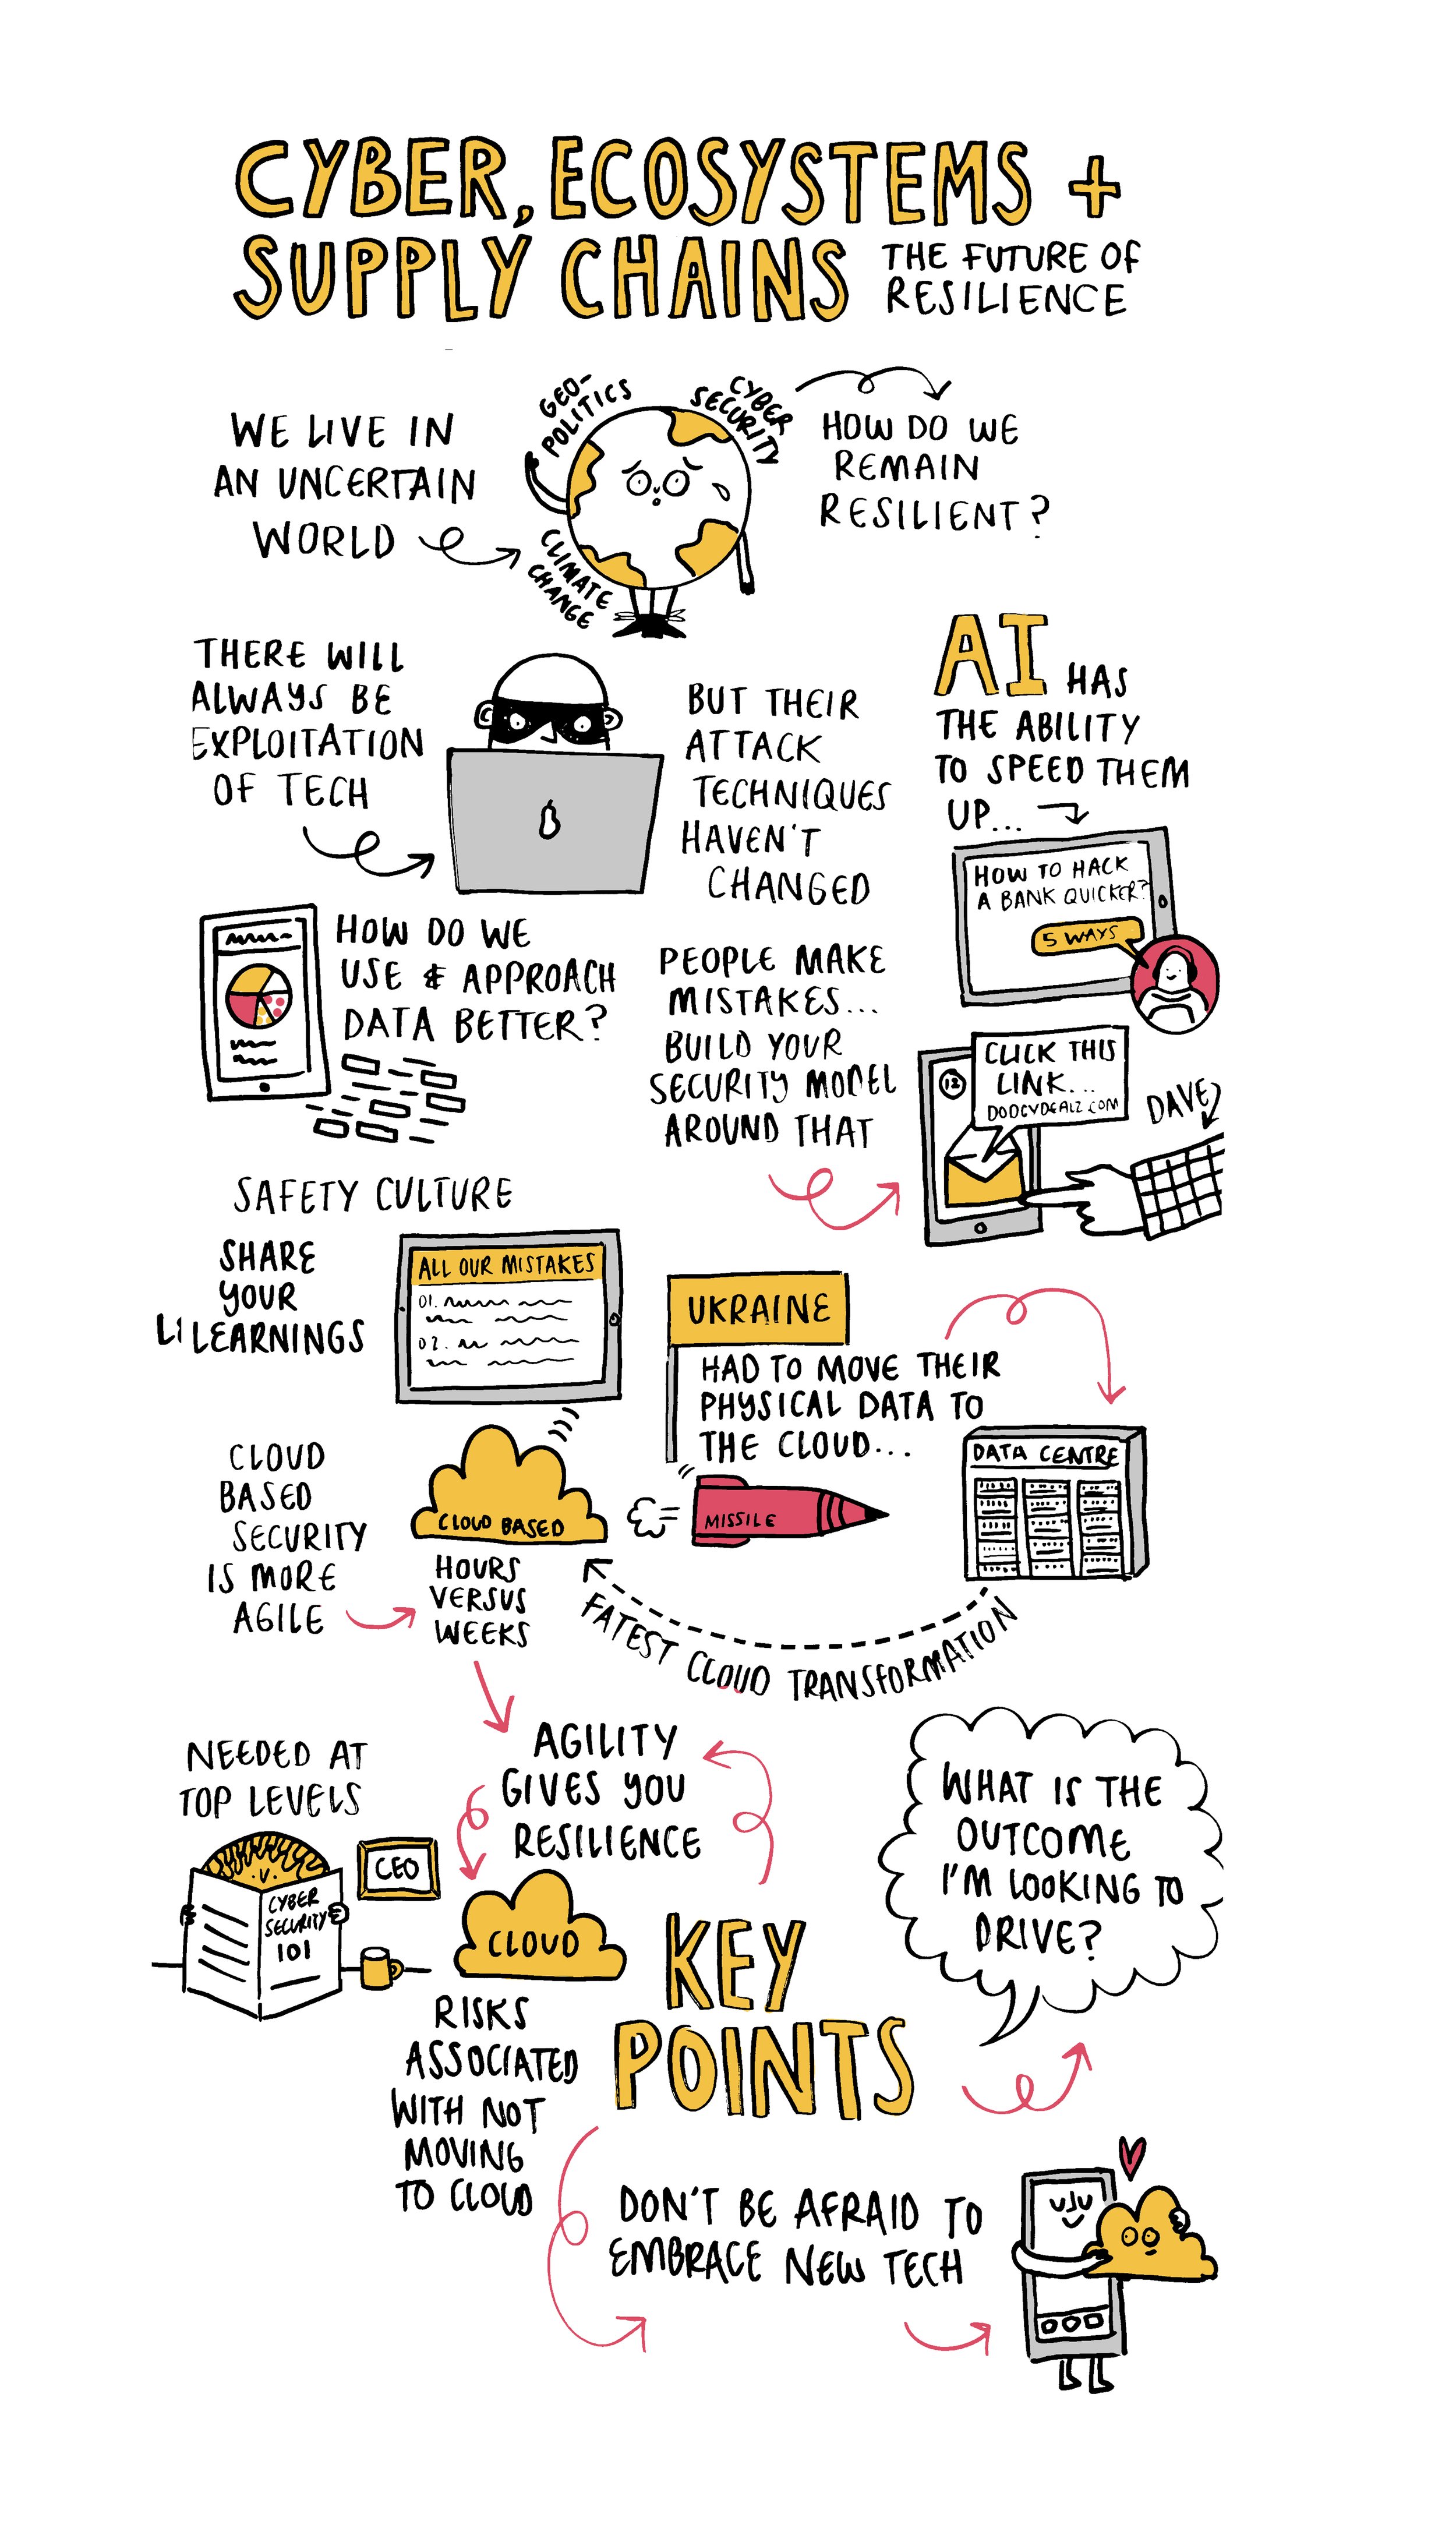 CYBER, ECOSYSTEMS +
SUPPLY CHAINS
THE FUTURE OF
RESILIENCE
WE LIVE IN
AN UNCERTAIN
WORLD
GEO-
POLITICS
CYBER
SECURITY
CLIMATE
CHANGE
HOW DO WE
REMAIN
RESILIENT?
THERE WILL
ALWAYS BE
EXPLOITATION
OF TECH
BUT THEIR
ATTACK
TECHNIQUES
HAVEN'T
CHANGED
AI HAS
THE ABILITY
TO SPEED THEM
UP...
HOW TO HACK
A BANK QUICKER?
5 WAYS
HOW DO WE
USE & APPROACH
DATA BETTER?
PEOPLE MAKE
MISTAKES...
BUILD YOUR
SECURITY MODEL
AROUND THAT
12
CLICK THIS
LINK...
DODGYDEALZ.COM
DAVE
SAFETY CULTURE
SHARE
YOUR
LI LEARNINGS
ALL OUR MISTAKES
01.
02.
UKRAINE
HAD TO MOVE THEIR
PHYSICAL DATA TO
THE CLOUD...
DATA CENTRE
MISSILE
CLOUD
BASED
SECURITY
IS MORE
AGILE
CLOUD BASED
HOURS
VERSUS
WEEKS
FATEST CLOUD TRANSFORMATION
AGILITY
GIVES YOU
RESILIENCE
NEEDED AT
TOP LEVELS
CEO
CYBER
SECURITY
101
CLOUD
RISKS
ASSOCIATED
WITH NOT
MOVING
TO CLOUD
KEY
POINTS
WHAT IS THE
OUTCOME
I'M LOOKING TO
DRIVE?
DON'T BE AFRAID TO
EMBRACE NEW TECH